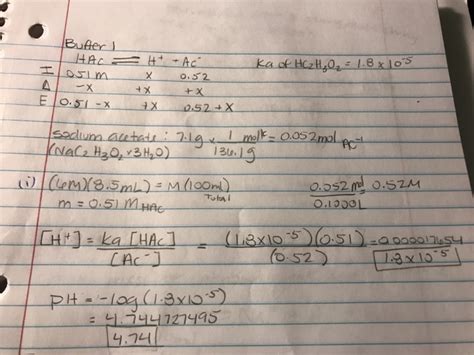 Buffer 1
HAC ⇌ H⁺ + AC⁻ Ka of HC₂H₃O₂ = 1.8 x 10⁻⁵
I 0.51 M x 0.52
Δ -x +x +x
E 0.51-x +x 0.52+x
sodium acetate: 7.1g x 1 mol / 136.1g = 0.052mol AC⁻¹
(NaC₂H₃O₂ x 3H₂O)
(i) (6M)(8.5mL) = M(100ml) Total 0.052mol / 0.1000L = 0.52M
m = 0.51 M HAC
[H⁺] = Ka [HAC] / [AC⁻] = (1.8x10⁻⁵)(0.51) / (0.52) = 0.000017654
1.8x10⁻⁵
pH = -log(1.8x10⁻⁵)
= 4.744727495
4.74